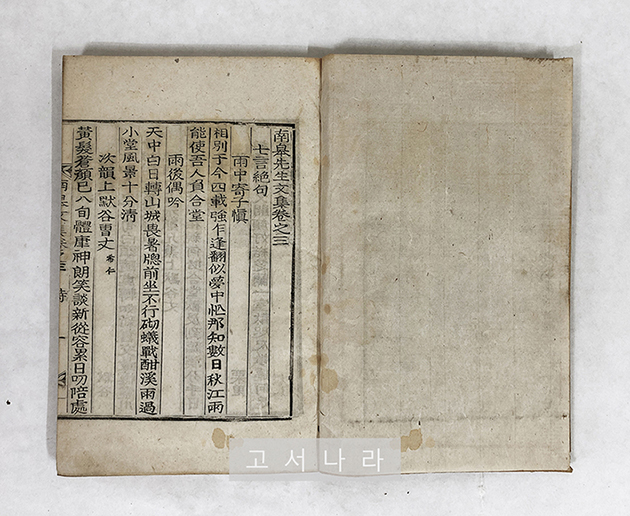 南皐先生文集卷之三
七言絶句
雨中寄子愼
相別于今四載強乍逢翻似夢中忙那知數日秋江雨
能使吾人負合堂
雨後偶吟
天中白日轉山城畏暑牕前坐不行砌蟻戰酣溪雨過
小堂風景十分清
次韻上默谷曺丈 希仁
黃髮蒼顔已八旬體康神朗笑談新從容累日叨陪處
南皐文集卷之三 詩 一
고서나라